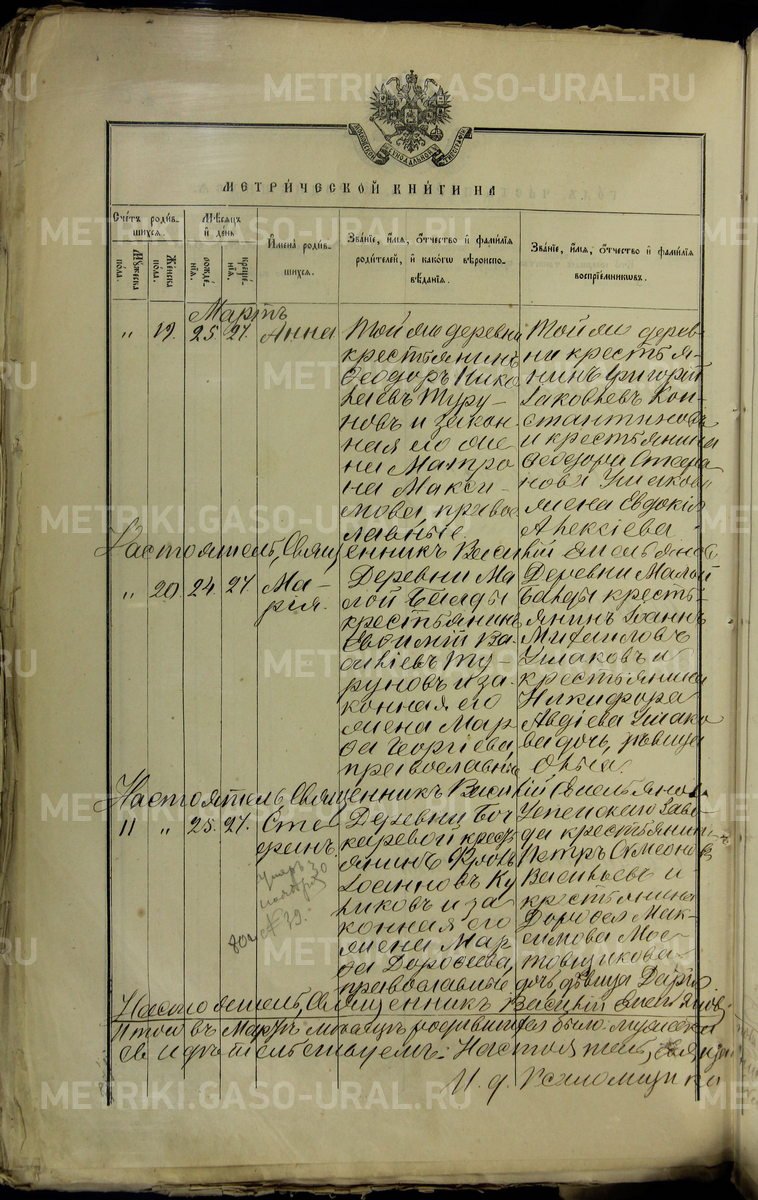 METRIKI.GASO-URAL.RU
МЕТРИ́ЧЕСКОЙ КНИ́ГИ НА
Сче́тъ роди́вшихся.
Мѣсяцъ и день
Имена̀ роди́вшихся.
Зва́нїе, имя, о́тчество и фами́лїя родителей, и како́гѡ вѣроисповѣданїя.
Зва́нїе, имя, о́тчество и фами́лїя воспрїемниковъ.
Мужеска пола.
Женска пола.
рожде́нїя.
креще́нїя.
Мартъ
" 19. 25. 27. Анна
Той же деревни
крестьянинъ
Ѳеодоръ Нико
лаевъ Туру-
новъ и закон
ная его же
на Матро
на Макси-
мова, право
славные
Той же дерев
ни крестья-
нинъ Григорій
Іаковлевъ Кон-
стантиновъ
и крестьянина
Ѳеодора Стефа
нова Ушакова
жена Евдокія
Алексіева.
Настоятель, Священникъ Василій Емельяновъ
" 20. 24. 27. Ма-
рія.
Деревни Ма
лой
крестьянинъ
Евѳимій Ва
силіевъ Ту-
руновъ и за-
конная его
жена Мар
ѳа Георгіева,
православные
Деревни Малой
кресть-
янинъ Іоаннъ
Михаиловъ
Ушаковъ и
крестьянина
Никифора
Авдіева Ушако
ва дочь, дѣвица
Ольга.
Настоятель, Священникъ Василій Емельяновъ
11 " 25. 27. Сте
фанъ.
умеръ 30
ноября
№ 29.
Деревни Боч
каревой крест
янинъ Яковъ
Іоанновъ Ку
ликовъ и за
конная его
жена Мар
ѳа Дороѳеева,
православные
Успенскаго Заво-
да крестьянинъ
Петръ Сѵмеоновъ
Васильевъ и
крестьянина
Дороѳея Мак-
симова Мос-
товщикова
дочь дѣвица Дарія
Настоятель, Священникъ Василій Емельяновъ.
Итого въ Мартѣ мѣсяцѣ родившихся было: мужеска
свидѣтельствуемъ: Настоятель, Священ
И. д. Псаломщика